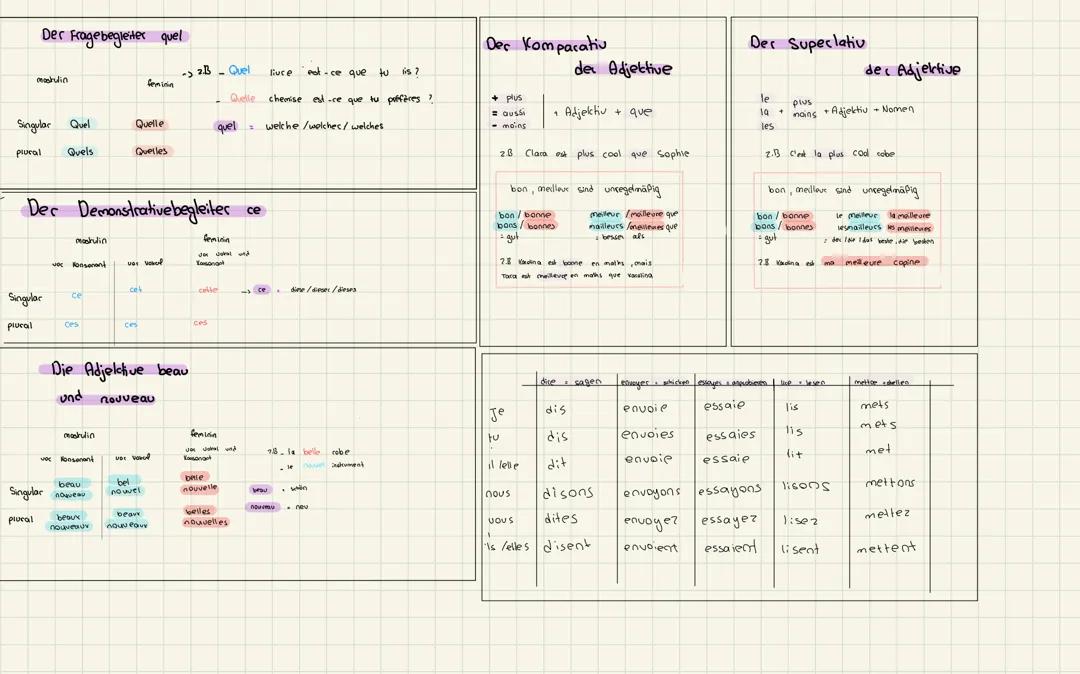 Der Fragebegleiter quel
maskulin feminin
Singular Quel Quelle
plural Quels Quelles
-> z.B - Quel livre est-ce que tu lis ?
- Quelle chemise est-ce que tu préfères ?
quel = welche /welcher/ welches
Der Demonstrativebegleiter ce
maskulin feminin
vor Konsonant vor Vokal vor Vokal und Konsonant
Singular ce cet cette
plural ces ces ces
-> ce = diese/dieser/dieses
Die Adjektive beau
und nouveau
maskulin feminin
vor Konsonant vor Vokal vor Vokal und Konsonant
Singular beau bel belle
nouveau nouvel nouvelle
plural beaux beaux belles
nouveaux nouveaux nouvelles
z.B - la belle robe
- le nouvel instrument
beau = schön
nouveau = neu
Der Komparativ
der Adjektive
+ plus
= aussi + Adjektiv + que
- moins
z.B Clara est plus cool que Sophie
bon, meilleur sind unregelmäßig
bon / bonne meilleur /meilleure que
bons / bonnes mailleurs /meilleures que
= gut = besser als
z.B Karolina est bonne en maths, mais
Tara est meilleure en maths que Karolina
Der Superlativ
der Adjektive
le
la + plus + Adjektiv + Nomen
les moins
z.B C'est la plus cool robe
bon, meilleur sind unregelmäßig
bon / bonne le meilleur la meilleure
bons / bonnes les mailleurs les meilleures
= gut = der/die/das beste, die besten
z.B Karolina est ma meilleure copine
dire = sagen envoyer = schicken essayer = anprobieren lire = lesen mettre = stellen
Je dis envoie essaie lis mets
tu dis envoies essaies lis mets
il/elle dit envoie essaie lit met
nous disons envoyons essayons lisons mettons
vous dites envoyez essayez lisez mettez
ils /elles disent envoient essaient lisent mettent